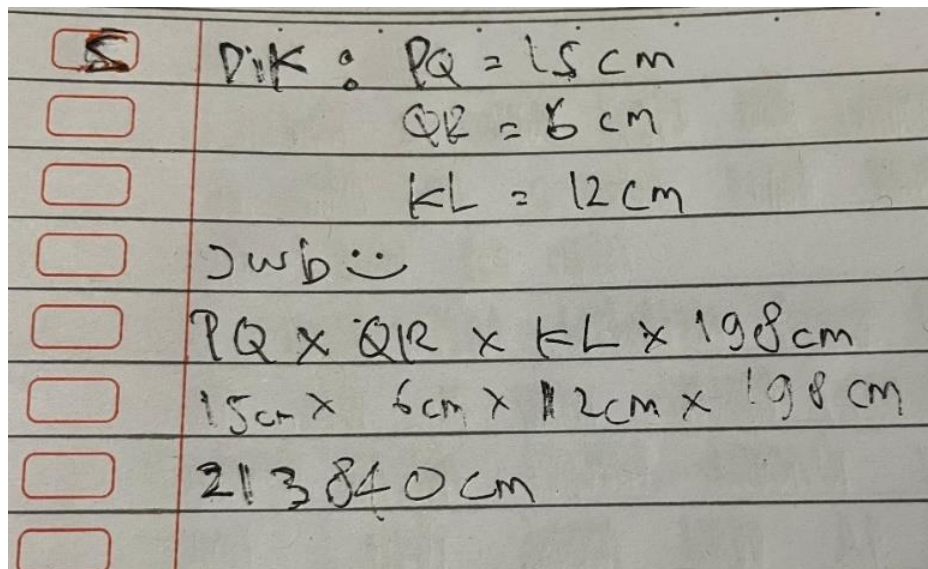 5 Dik : PQ = 15 cm
QR = 6 cm
KL = 12 cm
Jwb :
PQ x QR x KL x 198 cm
15cm x 6cm x 12cm x 198 cm
213840 cm